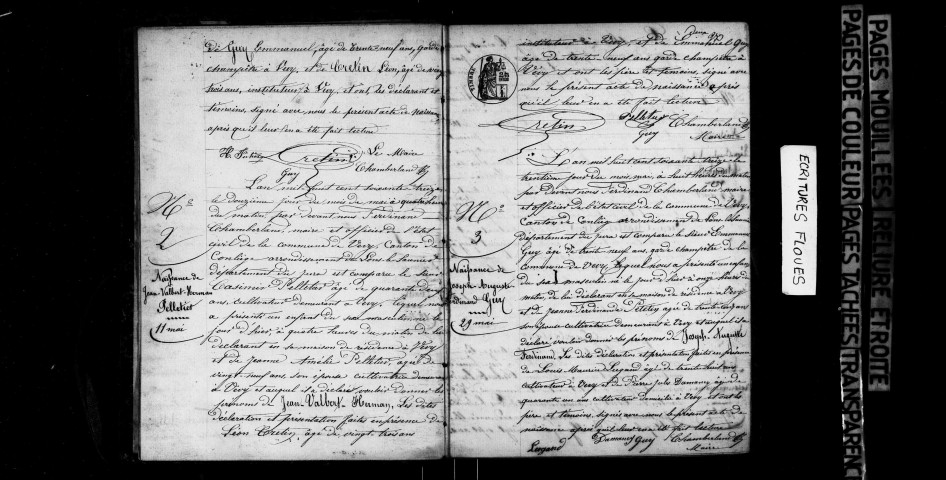 de Guy Emmanuel, âgé de trente-neuf ans, garde
champêtre à Vevy, et de Cretin Léon, âgé de vingt
trois ans, instituteur à Vevy, et ont, les déclarant et
témoins, signé avec nous le présent acte de naissance
après qu'il leur en a été fait lecture
Cretin Le Maire
Guy Chamberland
N°
2
Naissance de
Jean-Valbert-Herman
Pelletier
11 mai
L'an mil huit cent soixante treize
le douzième jour du mois de mai à quatre heures
du matin par devant nous Ferdinand
Chamberland, maire et officier de l'état
civil de la commune de Vevy, Canton de
Conliège arrondissement de Lons le Saunier
département du Jura est comparu le sieur
Casimir Pelletier âgé de quarante
ans, cultivateur demeurant à Vevy, lequel nous
a présenté un enfant du sexe masculin né le
jour d'hier, à quatre heures du matin de lui
déclarant en sa maison de résidence à Vevy
et de Jeanne Amélie Pelletier, âgée de
vingt-neuf ans, son épouse cultivatrice demeurant
à Vevy et auquel il a déclaré vouloir donner les
prénoms de Jean-Valbert-Herman, Les dites
déclaration et présentation faites en présence de
Léon Cretin, âgé de vingt-trois ans
instituteur à Vevy, et de Emmanuel Guy
âgé de trente-neuf ans garde champêtre à
Vevy et ont les père et témoins, signé avec
nous le présent acte de naissance après
qu'il leur en a été fait lecture
Cretin Guy Chamberland
Maire
N°
3
Naissance de
Joseph-Auguste
Ferdinand Guy
29 mai
L'an mil huit cent soixante treize le
trentième jour du mois mai, à huit heures du matin
par devant nous Ferdinand Chamberland maire
et officier de l'état civil de la commune de Vevy,
Canton de Conliège arrondissement de Lons le Saunier
Département du Jura est comparu le sieur Emmanuel
Guy âgé de trente neuf ans, garde champêtre de la
commune de Vevy, lequel nous a présenté un enfant
du sexe masculin né le jour d'hier à onze heures du
matin, de lui déclarant en sa maison de résidence à Vevy
et de Jeanne Ferdinande Pelletier, âgée de trente
son épouse cultivatrice demeurant à Vevy et auquel il a
déclaré vouloir donner les prénoms de Joseph-Auguste
Ferdinand. Les dites déclaration et présentation faites en présence
de Louis Maurice âgé de trente-huit ans
cultivateur à Vevy et de Pierre Jules Damany âgé de
quarante un ans cultivateur domicilié à Vevy et ont les
père et témoins signé avec nous le présent acte de
naissance après qu'il leur en a été fait lecture
Damany Guy Chamberland
Maire
ECRITURES FLOUES
PAGES MOUILLEES RELIURE ETROITE
PAGES DE COULEUR PAGES TACHEES TRANSPARENC